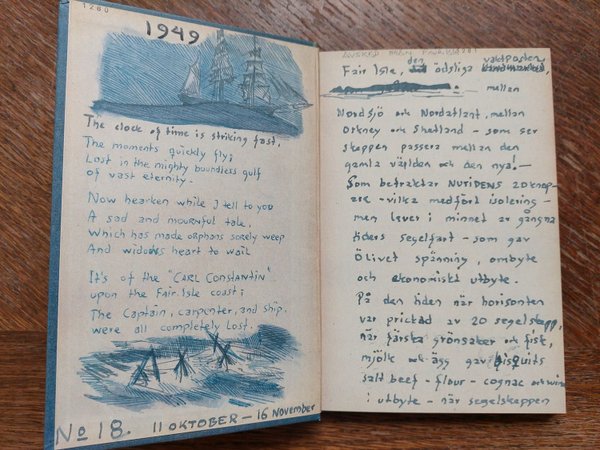 1280
1949
The clock of time is striking fast,
The moments quickly fly;
Lost in the mighty boundless gulf
of vast eternity.
Now hearken while I tell to you
A sad and mournful tale,
Which has made orphans sorely weep
And widows heart to wail
It's of the "CARL CONSTANTIN"
upon the Fair Isle coast;
The Captain, carpenter, and ship,
were all completely Lost.
No 18. 11 OKTOBER – 16 November
Fair Isle, den ödsliga vaktposten,
mellan
Nordsjö och Nordatlant, mellan
Orkney och Shetland – som ser
skeppen passera mellan den
gamla världen och den nya! –
Som betraktar NUTIDENS
– vilka medfört isolering –
men lever i minnet av gångna
tiders segelfart – som gav
Ölivet spänning, ombyte
och ekonomiskt utbyte.
På den tiden när horisonten
var prickad av 20 segelskepp,
när färska grönsaker och fisk,
mjölk och ägg gav bisquits
salt beef – flour – cognac och wine
i utbyte – när segelskeppen